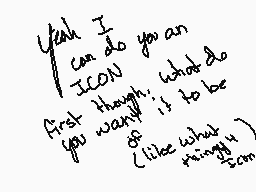 Yeah I
can do you an
ICON
first though, what do
you want it to be
of
(like what
thingy 4
Icon)